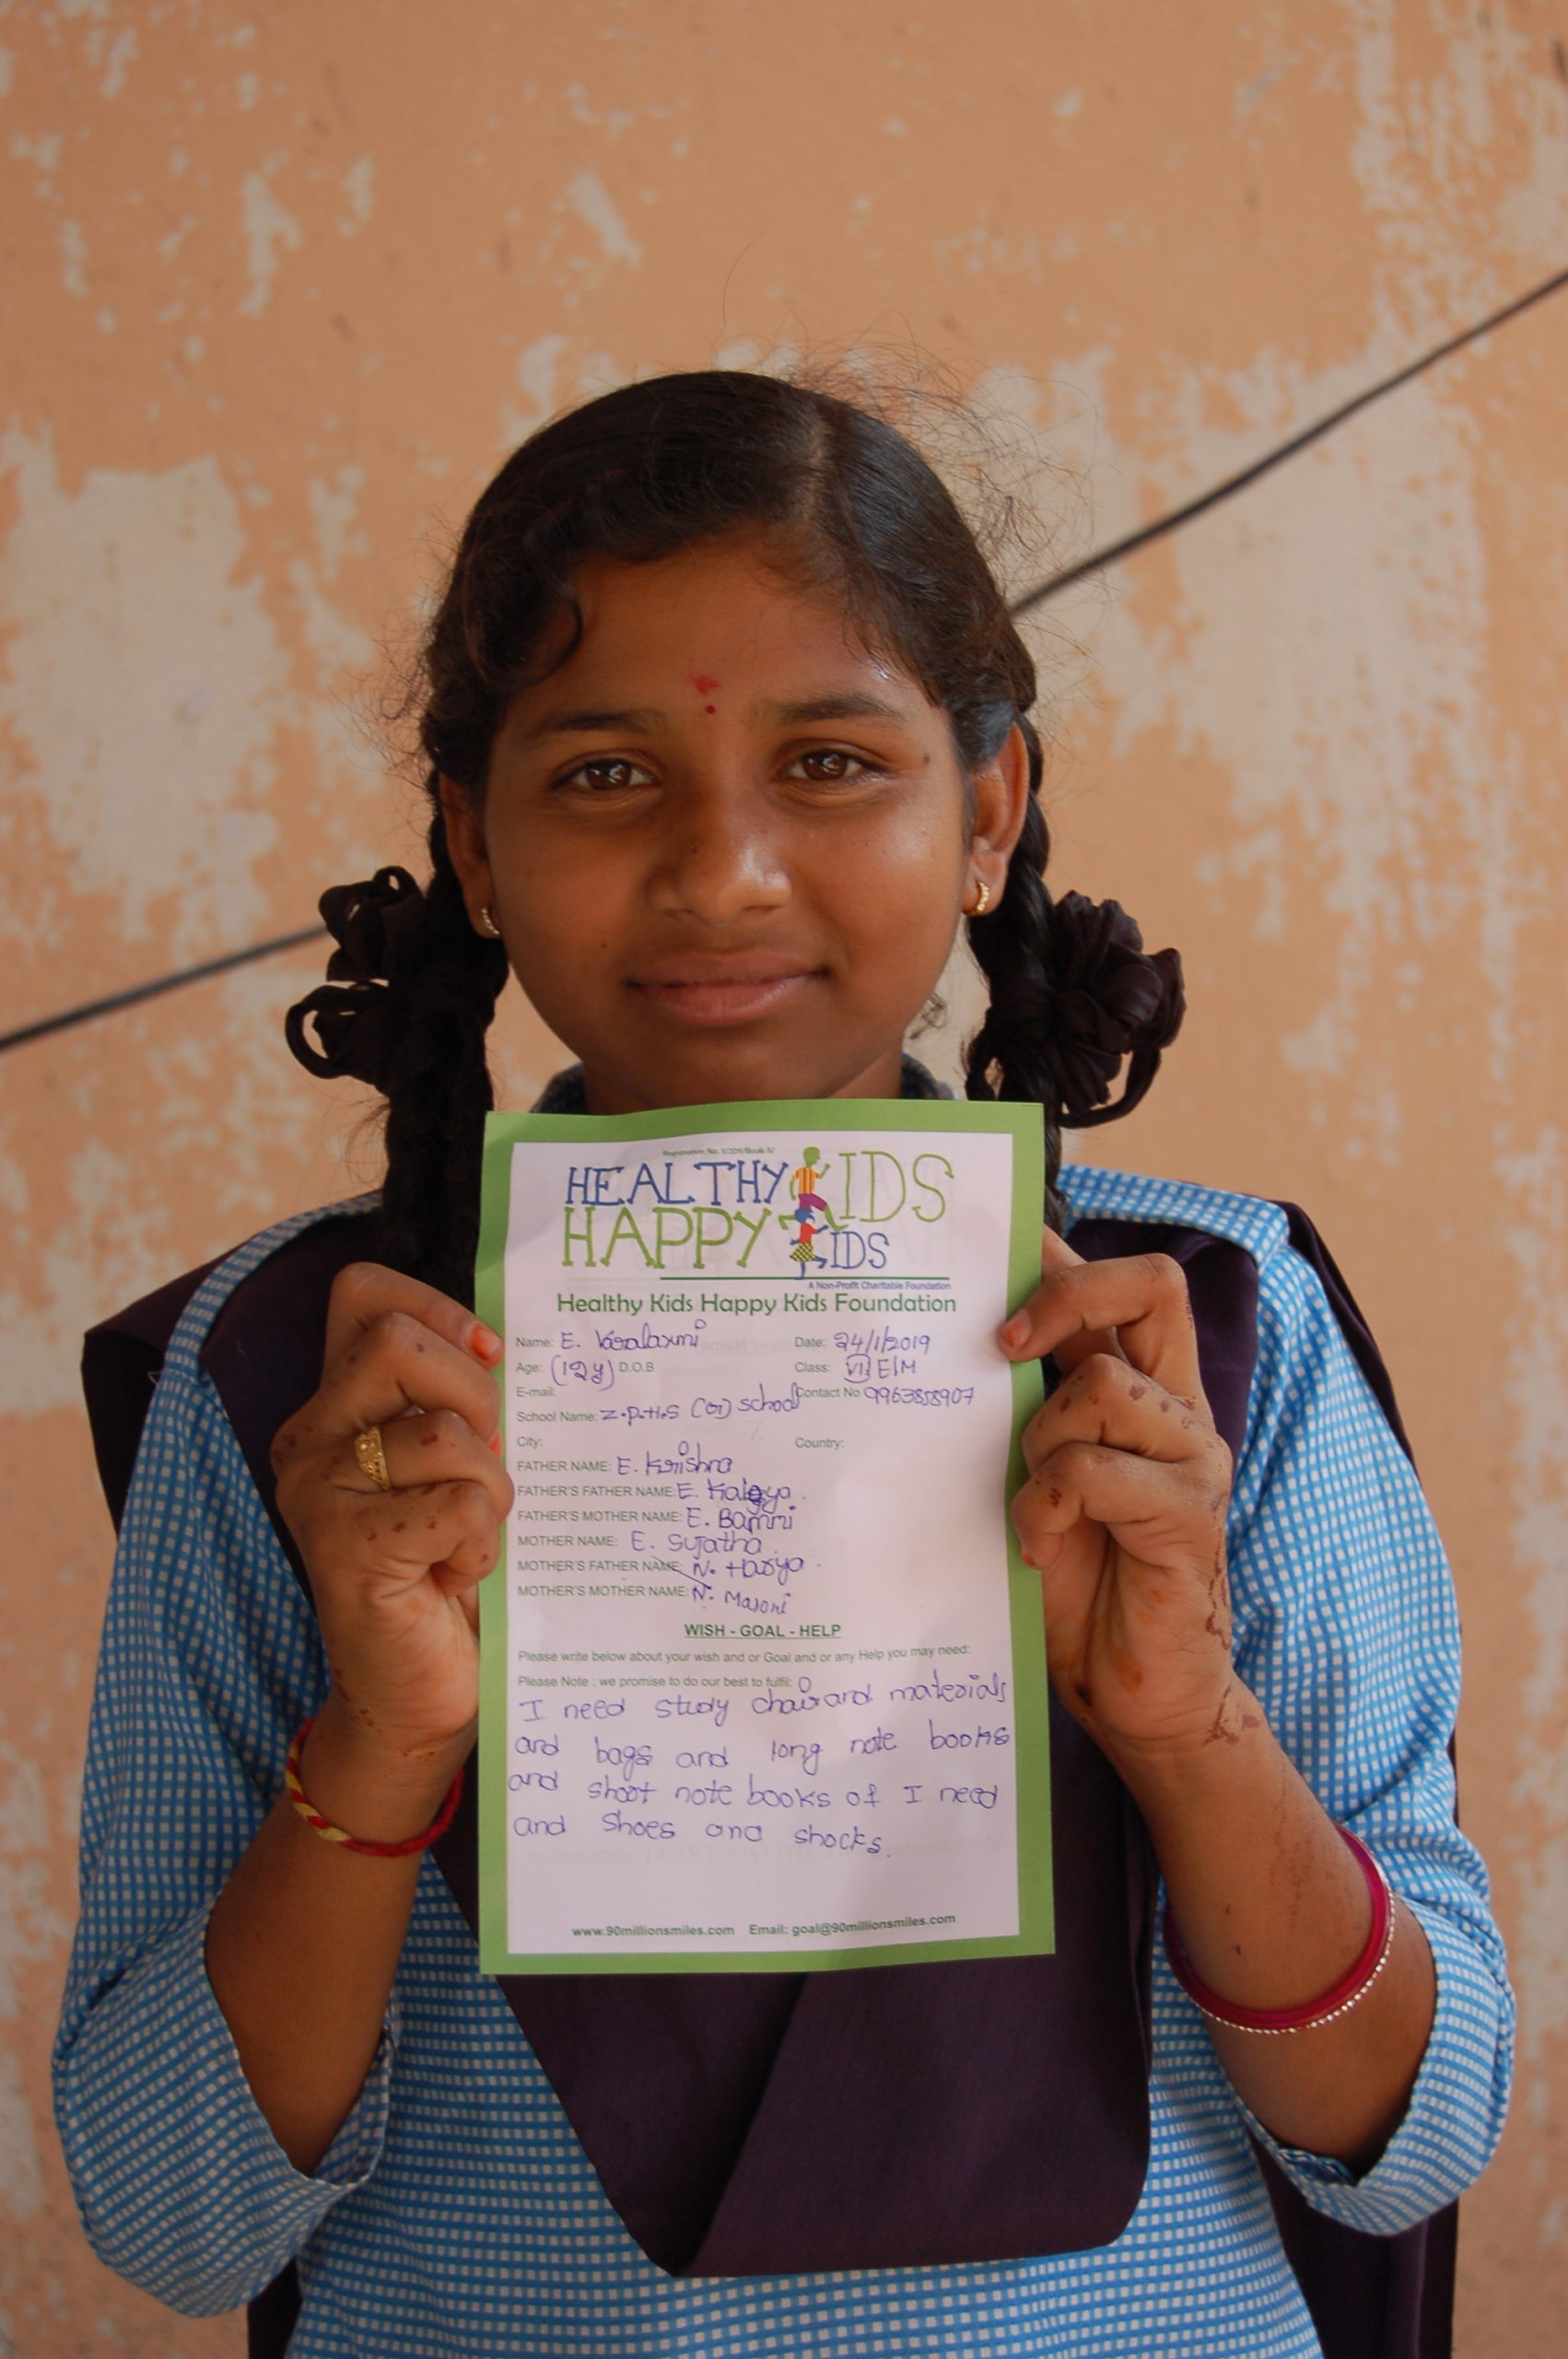 Registration No. 5/2011/Book IV
HEALTHY KIDS
HAPPY KIDS
A Non-Profit Charitable Foundation
Healthy Kids Happy Kids Foundation
Name: E. Varalaxmi Date: 24/1/2019
Age: (12 y) D.O.B Class: VII E/M
E-mail: Contact No 9963858907
School Name: Z.P.H.S (G) school
City: Country:
FATHER NAME: E. Krishna
FATHER'S FATHER NAME: E.
FATHER'S MOTHER NAME: E. Bammi
MOTHER NAME: E. Sujatha
MOTHER'S FATHER NAME: N. Harya
MOTHER'S MOTHER NAME: N. Maroni
WISH - GOAL - HELP
Please write below about your wish and or Goal and or any Help you may need:
Please Note : we promise to do our best to fulfil:
I need study chair and materials
and bags and long note books
and shoot note books of I need
and shoes and shocks.
www.90millionsmiles.com Email: goal@90millionsmiles.com